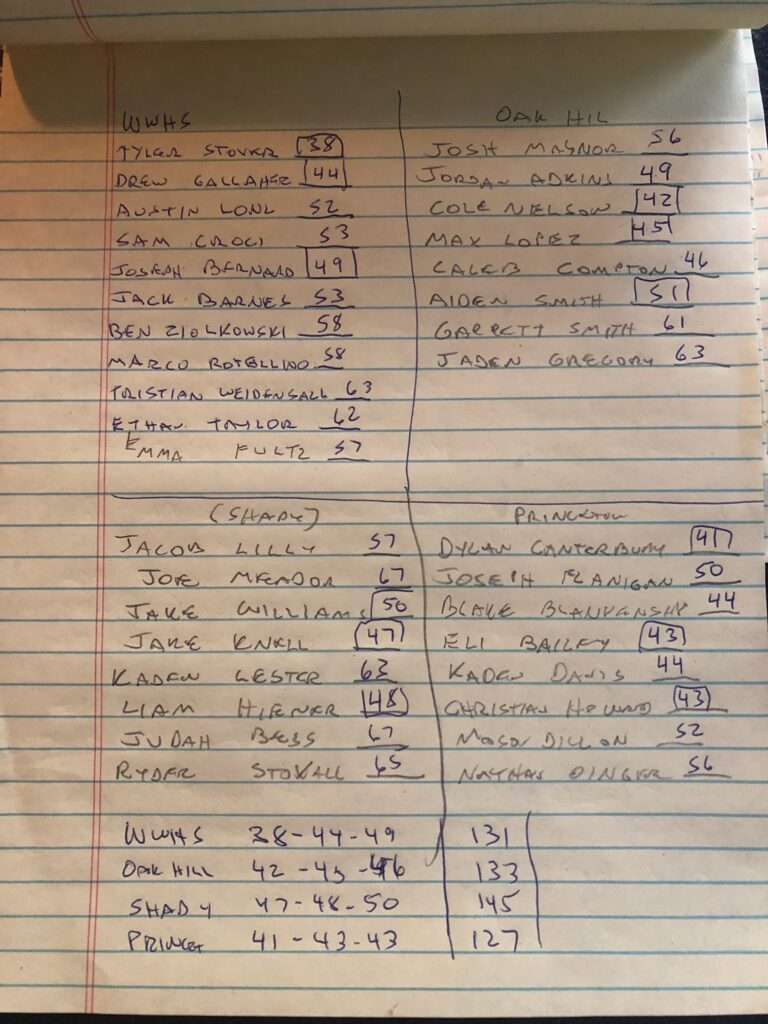 WWHS
TYLER STOVER 38
DREW GALLAHER 44
AUSTIN LONG 52
SAM CROCI 53
JOSEPH BERNARD 49
JACK BARNES 53
BEN ZIOLKOWSKI 58
MARCO ROTELLINO 58
TRISTIAN WEIDENSALL 63
ETHAN TAYLOR 62
EMMA FULTZ 57
OAK HIL
JOSH MASNOR 56
JORDAN ADKINS 49
COLE NELSON 42
MAX LOPEZ 45
CALEB COMPTON 46
AIDEN SMITH 51
GARRETT SMITH 61
JADEN GREGORY 63
(SHADY)
JACOB LILLY 57
JOE MEADOR 67
JAKE WILLIAMS 50
JAKE KNELL 47
KADEN LESTER 63
LIAM 48
JUDAH BESS 67
RYDER STOVALL 65
PRINCETON
DYLAN CANTERBURY 41
JOSEPH FLANIGAN 50
BLAKE BLANKENSHP 44
ELI BAILEY 43
KADEN DAVIS 44
CHRISTIAN HOWARD 43
MASON DILLON 52
NATHAN 56
WWHS 38-44-49 131
OAK HILL 42-45-46 133
SHADY 47-48-50 145
PRINCET 41-43-43 127